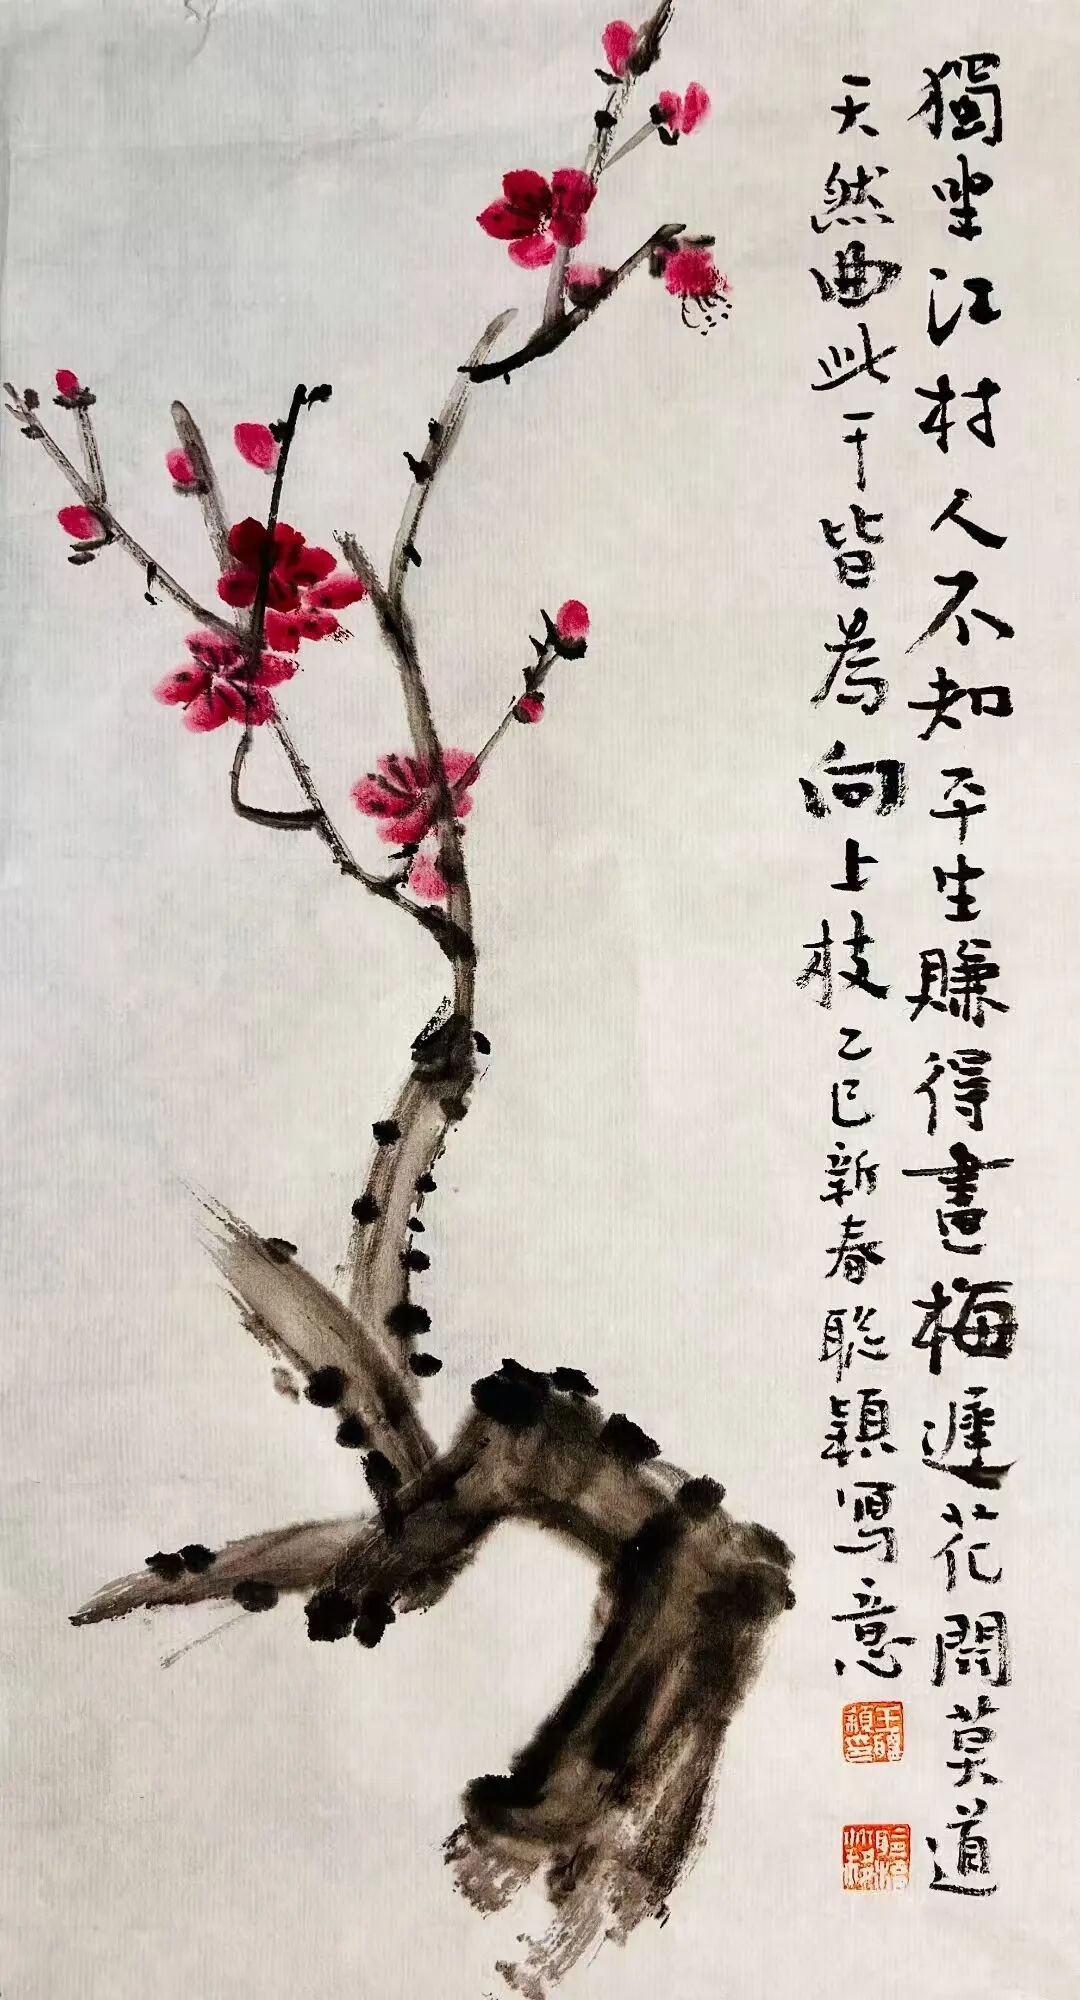 獨坐江村人不知平生賺得畫梅遲花開莫道
天然曲此干皆為向上枝乙巳新春聪穎寫意